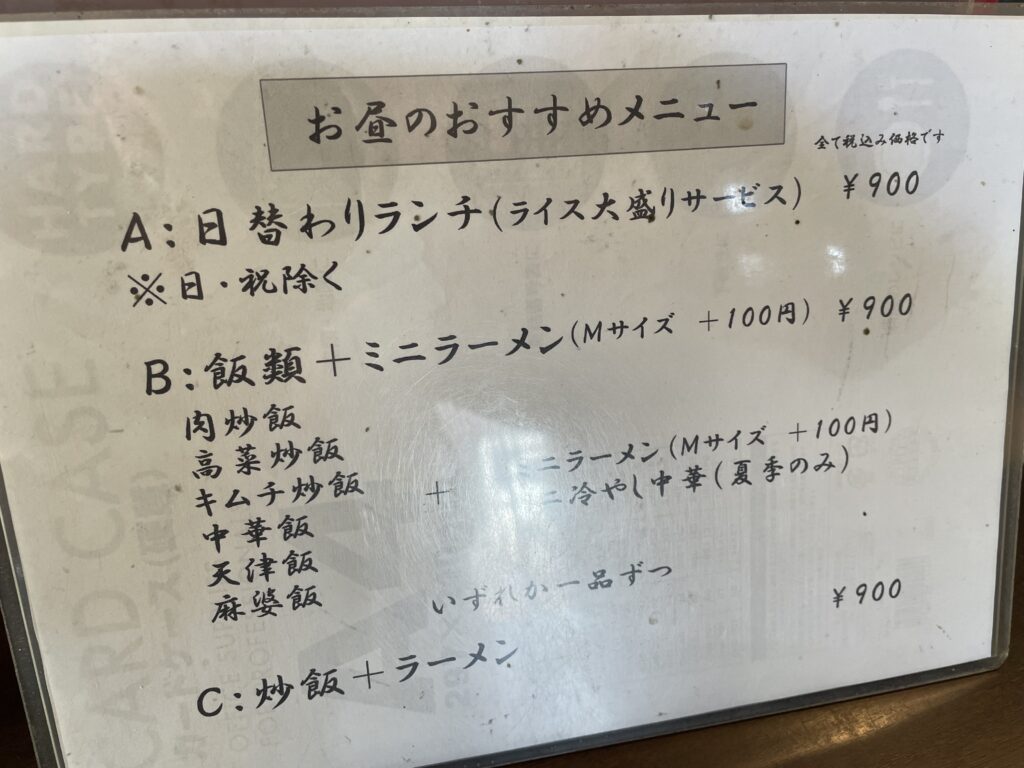 お昼のおすすめメニュー
全て税込み価格です
A:日替わりランチ(ライス大盛りサービス) ¥900
※日・祝除く
B:飯類+ミニラーメン(Mサイズ +100円) ¥900
肉炒飯
高菜炒飯
キムチ炒飯
中華飯
天津飯
麻婆飯
+
ニラーメン(Mサイズ +100円)
ニ冷やし中華(夏季のみ)
いずれか一品ずつ
C:炒飯+ラーメン ¥900
CARD CASE
カードケース